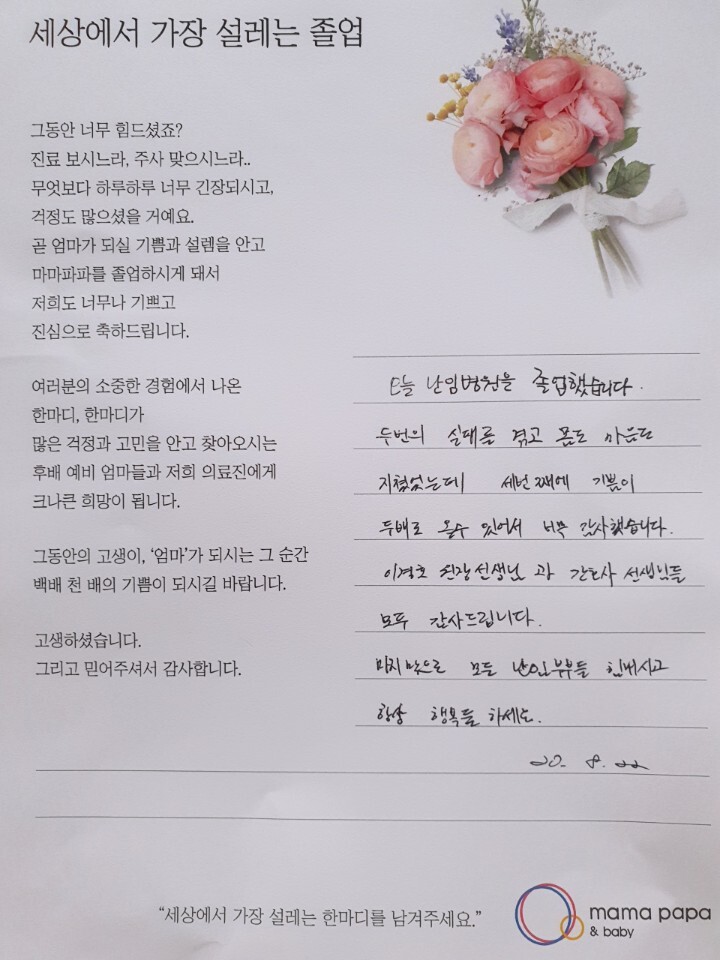 세상에서 가장 설레는 졸업
그동안 너무 힘드셨죠?
진료 보시느라, 주사 맞으시느라..
무엇보다 하루하루 너무 긴장되시고,
걱정도 많으셨을 거예요.
곧 엄마가 되실 기쁨과 설렘을 안고
마마파파를 졸업하시게 돼서
저희도 너무나 기쁘고
진심으로 축하드립니다.
여러분의 소중한 경험에서 나온
한마디, 한마디가
많은 걱정과 고민을 안고 찾아오시는
후배 예비 엄마들과 저희 의료진에게
크나큰 희망이 됩니다.
그동안의 고생이, ‘엄마’가 되시는 그 순간
백배 천 배의 기쁨이 되시길 바랍니다.
고생하셨습니다.
그리고 믿어주셔서 감사합니다.
난임병원을 졸업했습니다.
두번의 실패를 겪고 몸도 마음도
지쳤었는데 세번째에 기쁨이
두배로 올수 있어서 너무 감사했습니다.
이경호 원장선생님 과 간호사 선생님들
모두 감사드립니다.
마지막으로 모든 난임부부들 힘내시고
항상 행복들 하세요.
20. 8. 22
“세상에서 가장 설레는 한마디를 남겨주세요.”
mama papa
& baby